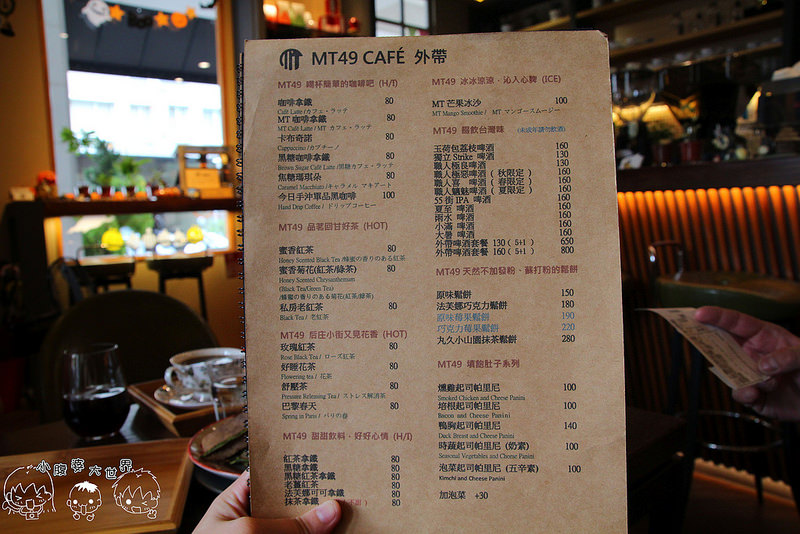 MT49 CAFÉ 外帶
MT49 喝杯簡單的咖啡吧 (H/I)
咖啡拿鐵 80
Café Latte / カフェ・ラッテ
MT 咖啡拿鐵 80
MT Café Latte / MT カフェ・ラッテ
卡布奇諾 80
Cappuccino / カプチーノ
黑糖咖啡拿鐵 80
Brown Sugar Café Latte /黑糖カフェ・ラッテ
焦糖瑪琪朵 80
Caramel Macchiato /キャラメル マキアート
今日手沖單品黑咖啡 100
Hand Drip Coffee / ドリップコーヒー
MT49 品茗回甘好茶 (HOT)
蜜香紅茶 80
Honey Scented Black Tea /蜂蜜の香りのある紅茶
蜜香菊花(紅茶/綠茶) 80
Honey Scented Chrysanthemam
(Black Tea/Green Tea)
/蜂蜜の香りのある菊花(紅茶/綠茶)
私房老紅茶 80
Black Tea / 老紅茶
MT49 后庄小街又見花香 (HOT)
玫瑰紅茶 80
Rose Black Tea / ローズ紅茶
好睡花茶 80
Flowering tea / 花茶
舒壓茶 80
Pressure Releasing Tea / ストレス解消茶
巴黎春天 80
Spring in Paris / パリの春
MT49 甜甜飲料、好好心情 (H/I)
紅茶拿鐵 80
黑糖拿鐵 80
黑糖紅茶拿鐵 80
老薑紅茶 80
法芙娜可可拿鐵 80
抹茶拿鐵 80
MT49 冰冰涼涼、沁入心脾 (ICE)
MT 芒果冰沙 100
MT Mango Smoothie / MT マンゴースムージー
MT49 暢飲台灣味 (未成年請勿飲酒)
玉荷包荔枝啤酒 160
獨立 Strike 啤酒 130
職人極良啤酒 130
職人極惡啤酒 ( 秋限定 ) 160
職人喜 啤酒 ( 春限定 ) 160
職人魍魅啤酒 ( 夏限定 ) 160
55 街 IPA 啤酒 160
夏至 啤酒 160
雨水 啤酒 160
小滿 啤酒 160
大暑 啤酒 160
外帶啤酒套餐 130 ( 5+1 ) 650
外帶啤酒套餐 160 ( 5+1 ) 800
MT49 天然不加發粉、蘇打粉的鬆餅
原味鬆餅 150
法芙娜巧克力鬆餅 180
原味莓果鬆餅 190
巧克力莓果鬆餅 220
丸久小山園抹茶鬆餅 280
MT49 填飽肚子系列
燻雞起司帕里尼 100
Smoked Chicken and Cheese Panini
培根起司帕里尼 100
Bacon and Cheese Panini
鴨胸起司帕里尼 140
Duck Breast and Cheese Panini
時蔬起司帕里尼 (奶素) 100
Seasonal Vegetables and Cheese Panini
泡菜起司帕里尼 (五辛素) 100
Kimchi and Cheese Panini
加泡菜 +30
小腹婆大世界